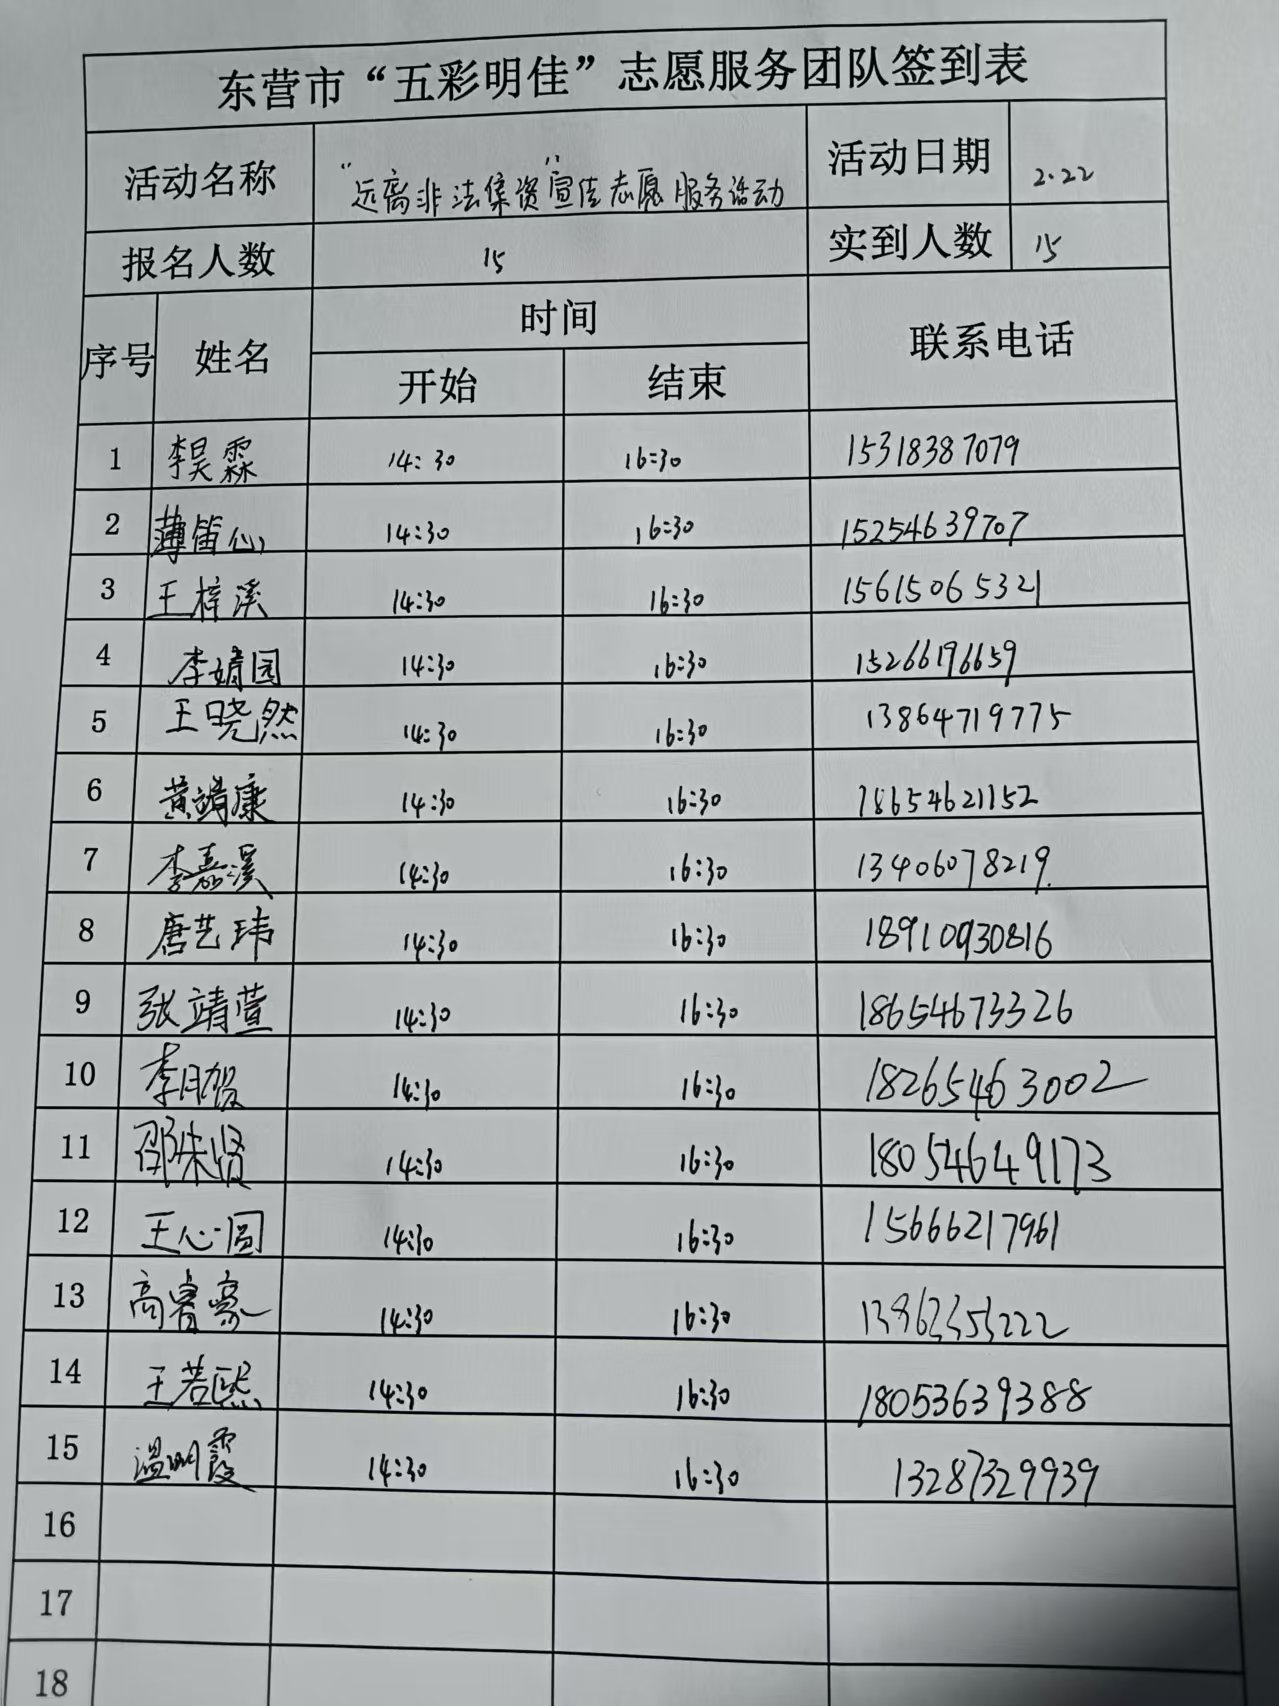 东营市“五彩明佳”志愿服务团队签到表
活动名称 “远离非法集资”宣传志愿服务活动 活动日期 2.22
报名人数 15 实到人数 15
序号 姓名 时间 联系电话
开始 结束
1 李昊霖 14:30 16:30 15318387079
2 薄笛心 14:30 16:30 15254639707
3 王梓溪 14:30 16:30 15615065321
4 李婧园 14:30 16:30 15266196659
5 王晓然 14:30 16:30 13864719775
6 黄靖康 14:30 16:30 18654621152
7 李嘉溪 14:30 16:30 13406078219
8 唐艺玮 14:30 16:30 18910930816
9 张靖萱 14:30 16:30 18654673326
10 李月贺 14:30 16:30 18265463002
11 邵朱贤 14:30 16:30 18054649173
12 王心圆 14:30 16:30 15666217961
13 高睿豪 14:30 16:30
14 王若熙 14:30 16:30 18053639388
15 温明霞 14:30 16:30 13287329939
16
17
18